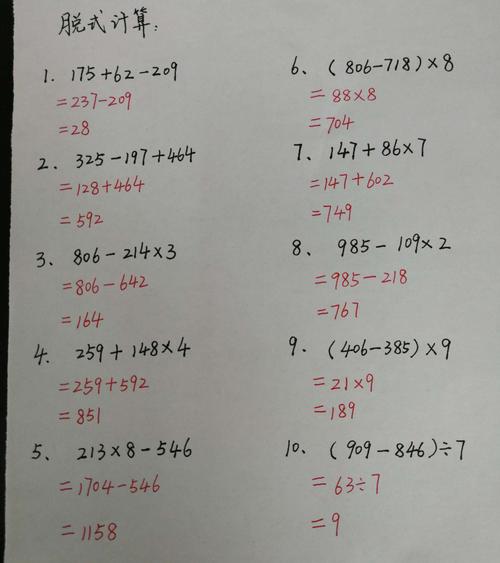 脱式计算:
1. 175+62-209
=237-209
=28
2、 325-197+464
=128+464
=592
3、 806-214×3
=806-642
=164
4. 259+148×4
=259+592
=851
5、 213×8-546
=1704-546
=1158
6、 (806-718)×8
=88×8
=704
7、 147+86×7
=147+602
=749
8、 985-109×2
=985-218
=767
9、 (406-385)×9
=21×9
=189
10、 (909-846)÷7
=63÷7
=9